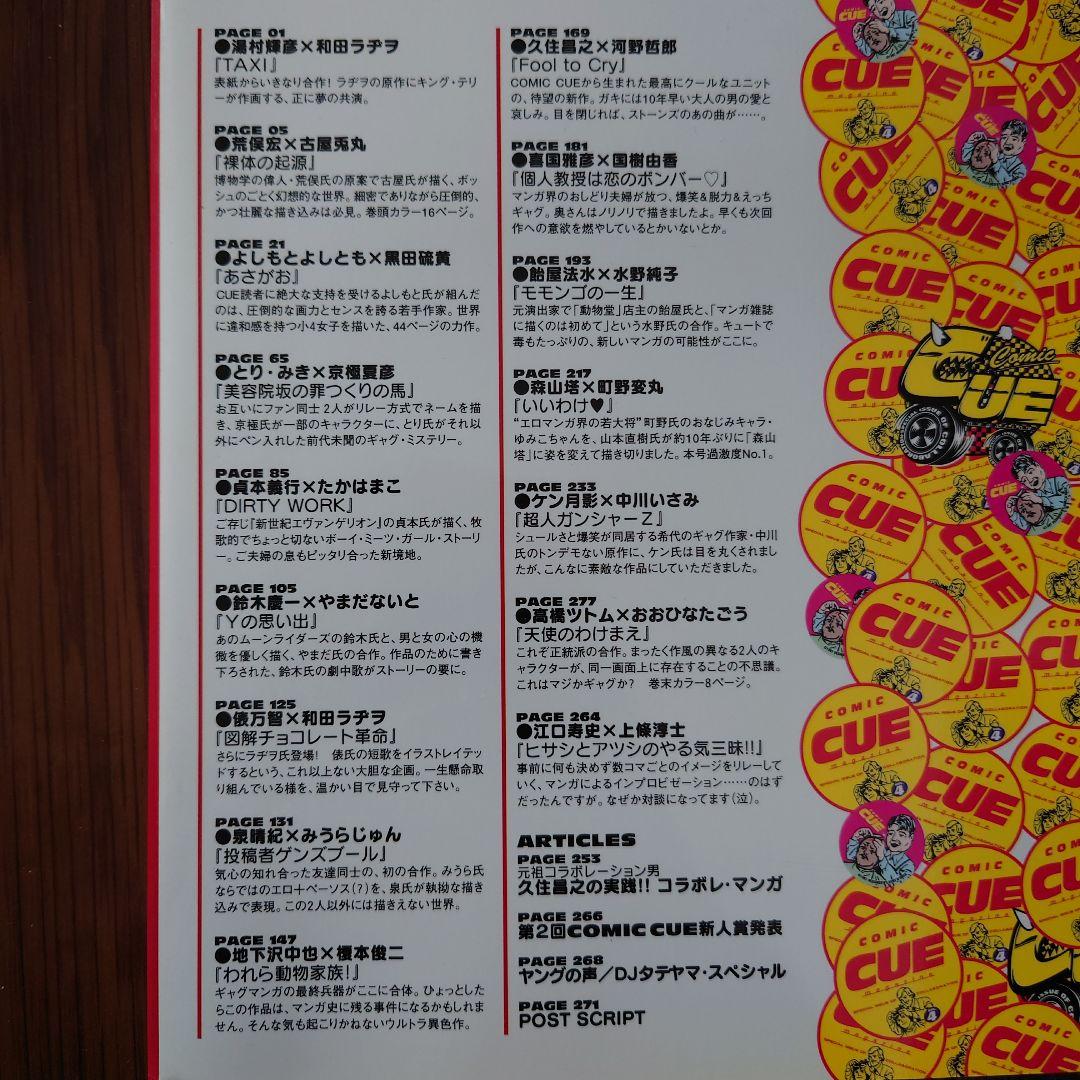 PAGE 01
●湯村輝彦×和田ラヂヲ
『TAXI』
表紙からいきなり合作! ラヂヲの原作にキング・テリ
ーが作画する、正に夢の共演。
PAGE 05
●荒俣宏×古屋兎丸
『裸体の起源』
博物学の偉人・荒俣氏の原案で古屋氏が描く、ボッ
シュのごとく幻想的な世界。細密でありながら圧倒的、
かつ壮麗な描き込みは必見。巻頭カラー16ページ。
PAGE 21
●よしもとよしとも×黒田硫黄
『あさがお』
CUE読者に絶大な支持を受けるよしもと氏が組んだ
のは、圧倒的な画力とセンスを誇る若手作家。世界
に違和感を持つ小4女子を描いた、44ページの力作。
PAGE 65
●とり・みき×京極夏彦
『美容院坂の罪つくりの馬』
お互いにファン同士2人がリレー方式でネームを描
き、京極氏が一部のキャラクターに、とり氏がそれ以
外にペン入れした前代未聞のギャグ・ミステリー。
PAGE 85
●貞本義行×たかはまこ
『DIRTY WORK』
ご存じ『新世紀エヴァンゲリオン』の貞本氏が描く、牧
歌的でちょっと切ないボーイ・ミーツ・ガール・ストーリ
ー。ご夫婦の息もピッタリ合った新境地。
PAGE 105
●鈴木慶一×やまだないと
『Yの思い出』
あのムーンライダーズの鈴木氏と、男と女の心の機
微を優しく描く、やまだ氏の合作。作品のために書き
下ろされた、鈴木氏の劇中歌がストーリーの要に。
PAGE 125
●俵万智×和田ラヂヲ
『図解チョコレート革命』
さらにラヂヲ氏登場! 俵氏の短歌をイラストレイテッ
ドするという、これ以上ない大胆な企画。一生懸命取
り組んでいる様を、温かい目で見守って下さい。
PAGE 131
●泉晴紀×みうらじゅん
『投稿者ゲンズブール』
気心の知れ合った友達同士の、初の合作。みうら氏
ならではのエロ+ペーソス(?)を、泉氏が執拗な描き
込みで表現。この2人以外には描きえない世界。
PAGE 147
●地下沢中也×榎本俊二
『われら動物家族!』
ギャグマンガの最終兵器がここに合体。ひょっとした
らこの作品は、マンガ史に残る事件になるかもしれま
せん。そんな気も起こりかねないウルトラ異色作。
PAGE 169
●久住昌之×河野哲郎
『Fool to Cry』
COMIC CUEから生まれた最高にクールなユニット
の、待望の新作。ガキには10年早い大人の男の愛と
哀しみ。目を閉じれば、ストーンズのあの曲が……。
PAGE 181
●喜国雅彦×国樹由香
『個人教授は恋のボンバー♡』
マンガ界のおしどり夫婦が放つ、爆笑&脱力&えっち
ギャグ。奥さんはノリノリで描きましたよ。早くも次回
作への意欲を燃やしているとかいないとか。
PAGE 193
●飴屋法水×水野純子
『モモンゴの一生』
元演出家で「動物堂」店主の飴屋氏と、「マンガ雑誌
に描くのは初めて」という水野氏の合作。キュートで
毒もたっぷりの、新しいマンガの可能性がここに。
PAGE 217
●森山塔×町野変丸
『いいわけ♥』
“エロマンガ界の若大将”町野氏のおなじみキャラ・
ゆみこちゃんを、山本直樹氏が約10年ぶりに「森山
塔」に姿を変えて描き切りました。本号過激度No.1。
PAGE 233
●ケン月影×中川いさみ
『超人ガンシャーZ』
シュールさと爆笑が同居する希代のギャグ作家・中川
氏のトンデモない原作に、ケン氏は目を丸くされまし
たが、こんなに素敵な作品にしていただきました。
PAGE 277
●高橋ツトム×おおひなたごう
『天使のわけまえ』
これぞ正統派の合作。まったく作風の異なる2人のキ
ャラクターが、同一画面上に存在することの不思議。
これはマジかギャグか? 巻末カラー8ページ。
PAGE 264
●江口寿史×上條淳士
『ヒサシとアツシのやる気三昧!!』
事前に何も決めず数コマごとのイメージをリレーして
いく、マンガによるインプロビゼーション……のはず
だったんですが。なぜか対談になってます(泣)。
ARTICLES
PAGE 253
元祖コラボレーション男
久住昌之の実践!! コラボレ・マンガ
PAGE 266
第2回COMIC CUE新人賞発表
PAGE 268
ヤングの声/DJタテヤマ・スペシャル
PAGE 271
POST SCRIPT
COMIC
CUE
magazine
SPECIAL ISSUE OF COLLABORATION
4
Comic
CUE